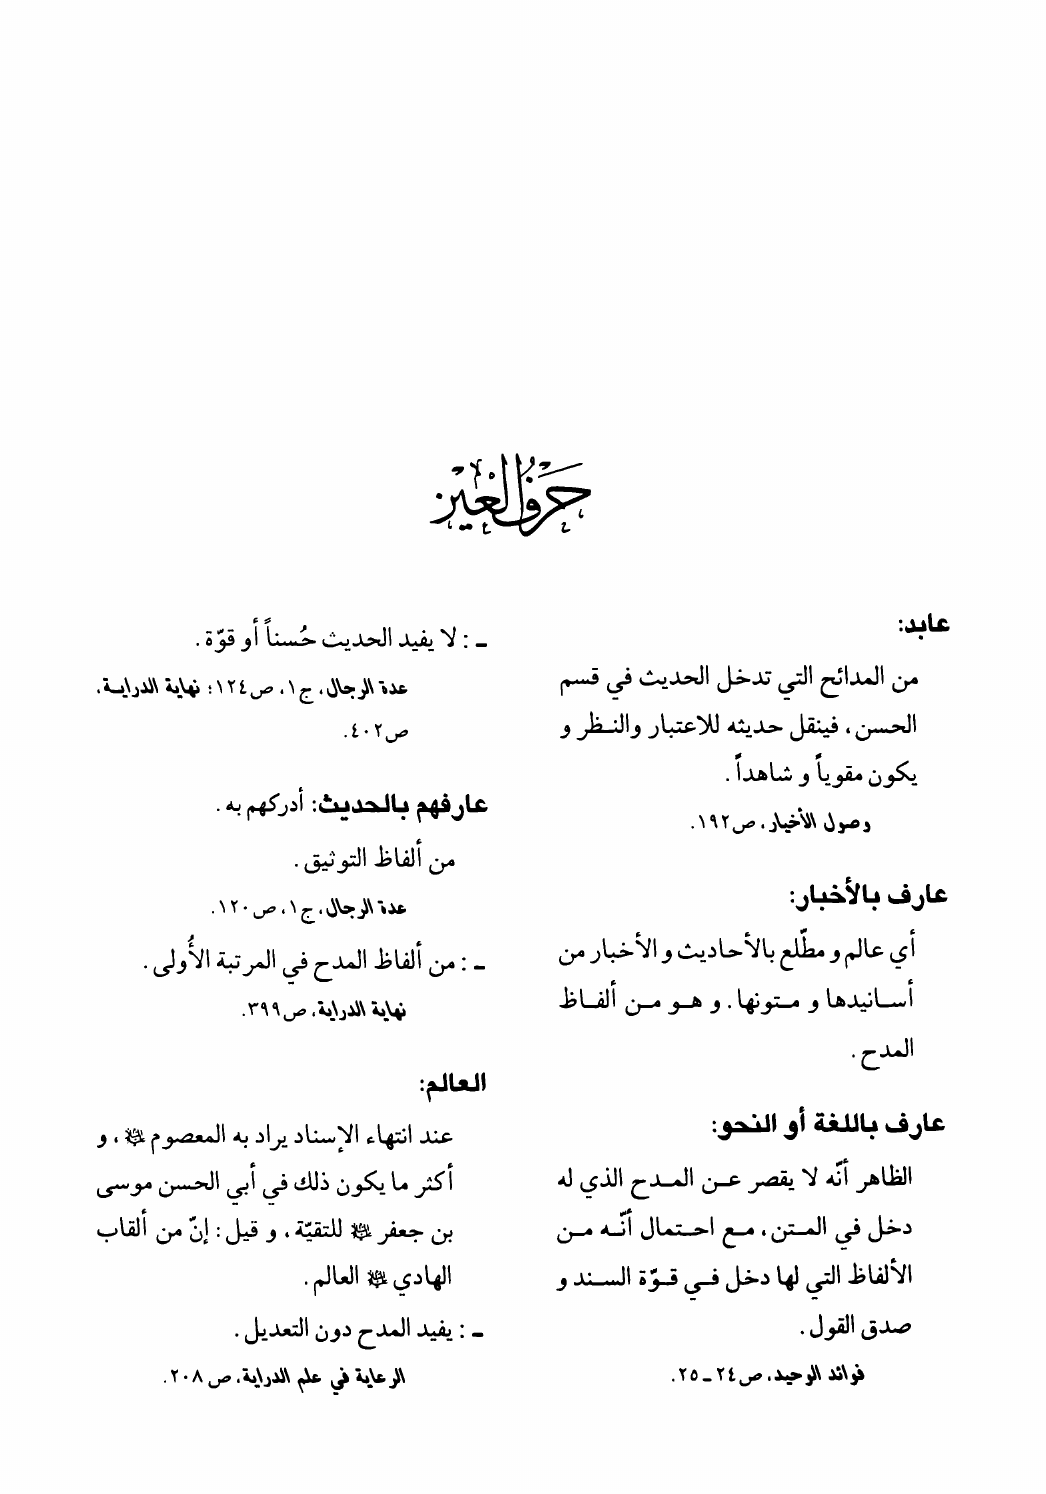 حَرْفُ الْعَيْن
عابد:
من المدائح التي تدخل الحديث في قسم
الحسن، فينقل حديثه للاعتبار والنظر و
يكون مقوياً و شاهداً.
وصول الأخيار، ص١٩٢.
عارف بالأخبار:
أي عالم و مطّلع بالأحاديث و الأخبار من
أسانيدها و متونها. و هو من ألفاظ
المدح.
عارف باللغة أو النحو:
الظاهر أنّه لا يقصر عن المدح الذي له
دخل في المتن، مع احتمال أنّه من
الألفاظ التي لها دخل في قوّة السند و
صدق القول.
فوائد الوحيد، ص٢٤ـ٢٥.
ـ : لا يفيد الحديث حُسناً أو قوّة.
عدة الرجال، ج١، ص١٢٤؛ نهاية الدراية،
ص٤٠٢.
عارفهم بالحديث: أدركهم به.
من ألفاظ التوثيق.
عدة الرجال، ج١، ص١٢٠.
ـ : من ألفاظ المدح في المرتبة الأُولى.
نهاية الدراية، ص٣٩٩.
العالم:
عند انتهاء الإسناد يراد به المعصوم ، و
أكثر ما يكون ذلك في أبي الحسن موسى
بن جعفر للتقيّة، و قيل: إنّ من ألقاب
الهادي العالم.
ـ : يفيد المدح دون التعديل.
الرعاية في علم الدراية، ص٢٠٨.